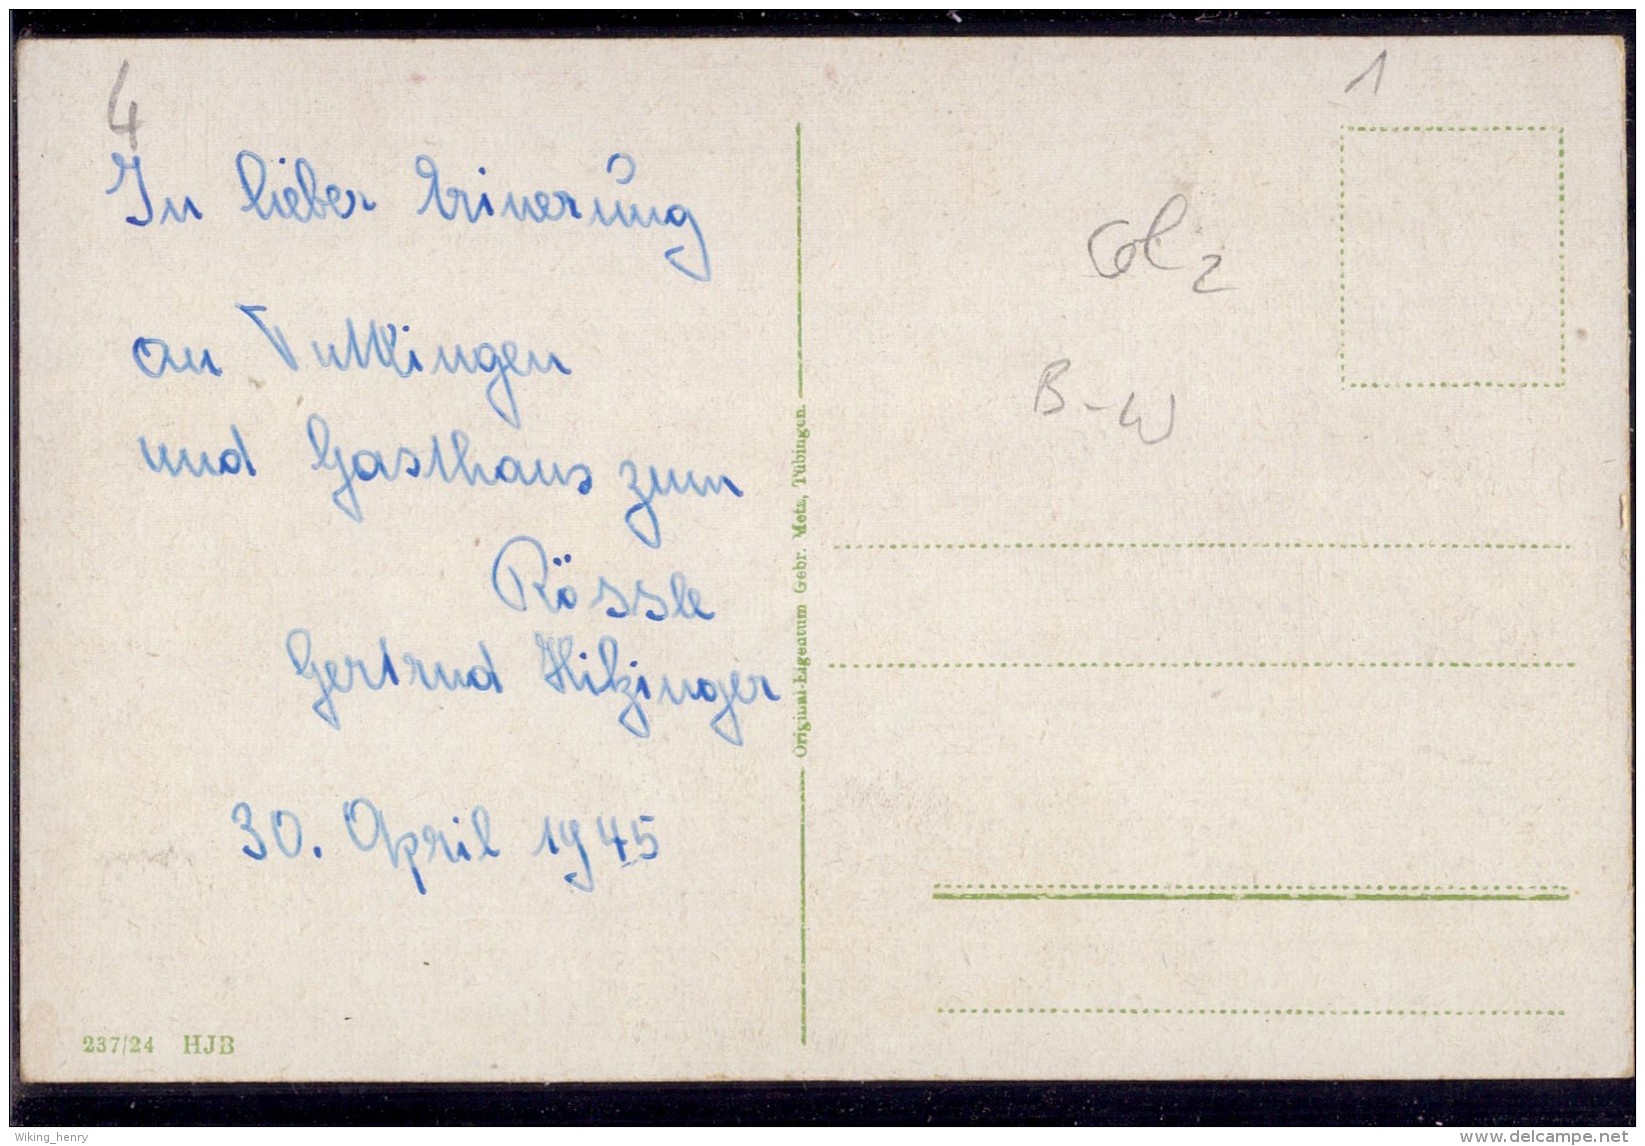 4
In lieber Erinerung
an Tuttlingen
und Gasthaus zum
Rössle
Gertrud Hilzinger
30. April 1945
237/24 HJB
Original-Eigentum Gebr. Metz, Tübingen.
1
B-W
Wiking_henry
delcampe.net